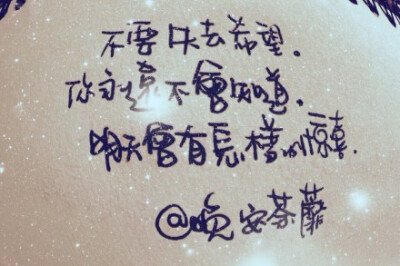 不要失去希望.
你永遠不會知道.
明天會有怎樣的惊喜.
@晚安荼蘼